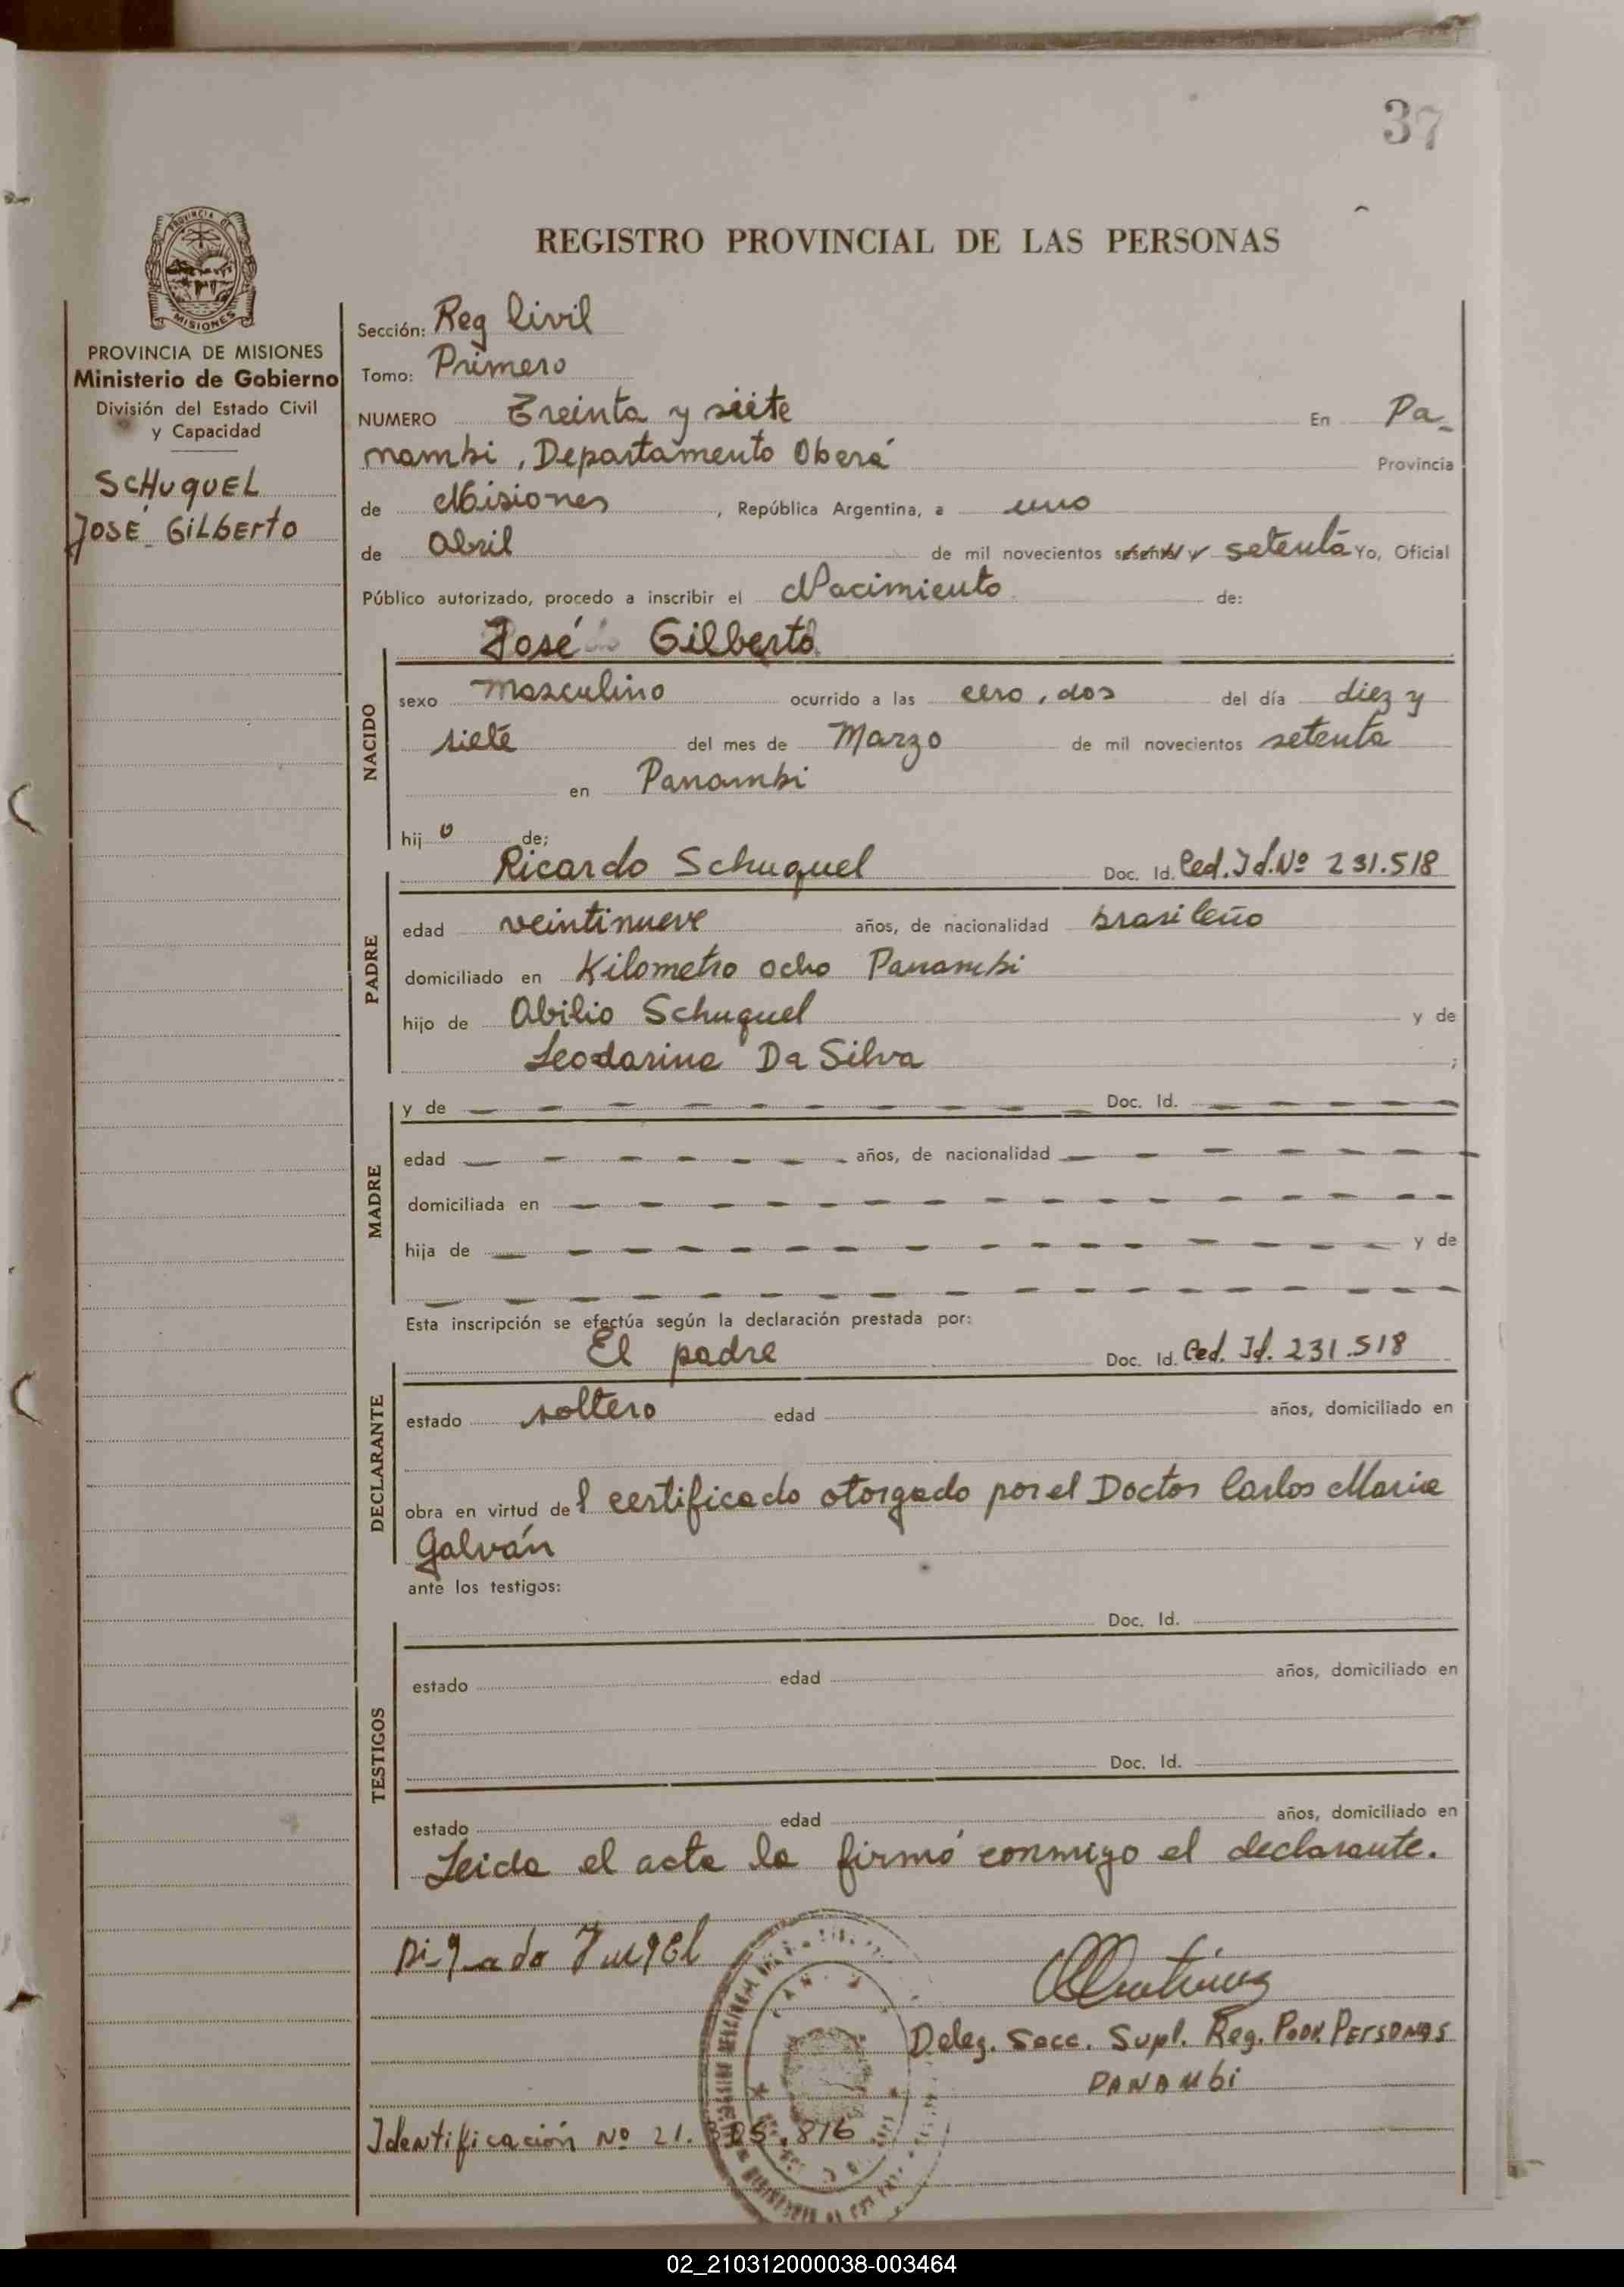 37
REGISTRO PROVINCIAL DE LAS PERSONAS
PROVINCIA DE
MISIONES
PROVINCIA DE MISIONES
Ministerio de Gobierno
División del Estado Civil
y Capacidad
SCHUQUEL
JOSÉ GILBERTO
Sección: Reg Civil
Tomo: Primero
NUMERO Treinta y siete En Pa-
nambi, Departamento Oberá Provincia
de Misiones, República Argentina, a uno
de Abril de mil novecientos sesenta y setenta Yo, Oficial
Público autorizado, procedo a inscribir el Nacimiento de:
José Gilberto
NACIDO
sexo masculino ocurrido a las cero, dos del día diez y
siete del mes de Marzo de mil novecientos setenta
en Panambi
hij o de;
Ricardo Schuquel Doc. Id. Ced. Id. Nº 231.518
PADRE
edad veintinueve años, de nacionalidad brasileño
domiciliado en Kilometro ocho Panambi
hijo de Abilio Schuquel y de
Leodarina Da Silva ;
MADRE
y de Doc. Id.
edad años, de nacionalidad
domiciliada en
hija de y de
Esta inscripción se efectúa según la declaración prestada por:
El padre Doc. Id. Ced. Id. 231.518
DECLARANTE
estado soltero edad años, domiciliado en
obra en virtud de l certificado otorgado por el Doctor Carlos Maria
Galván
ante los testigos:
TESTIGOS
Doc. Id.
estado edad años, domiciliado en
Doc. Id.
estado edad años, domiciliado en
Leida el acta la firmó conmigo el declarante.
Deleg. Secc. Supl. Reg. PERSONAS
PANAMBI
Identificación Nº 21. .816
02_210312000038-003464